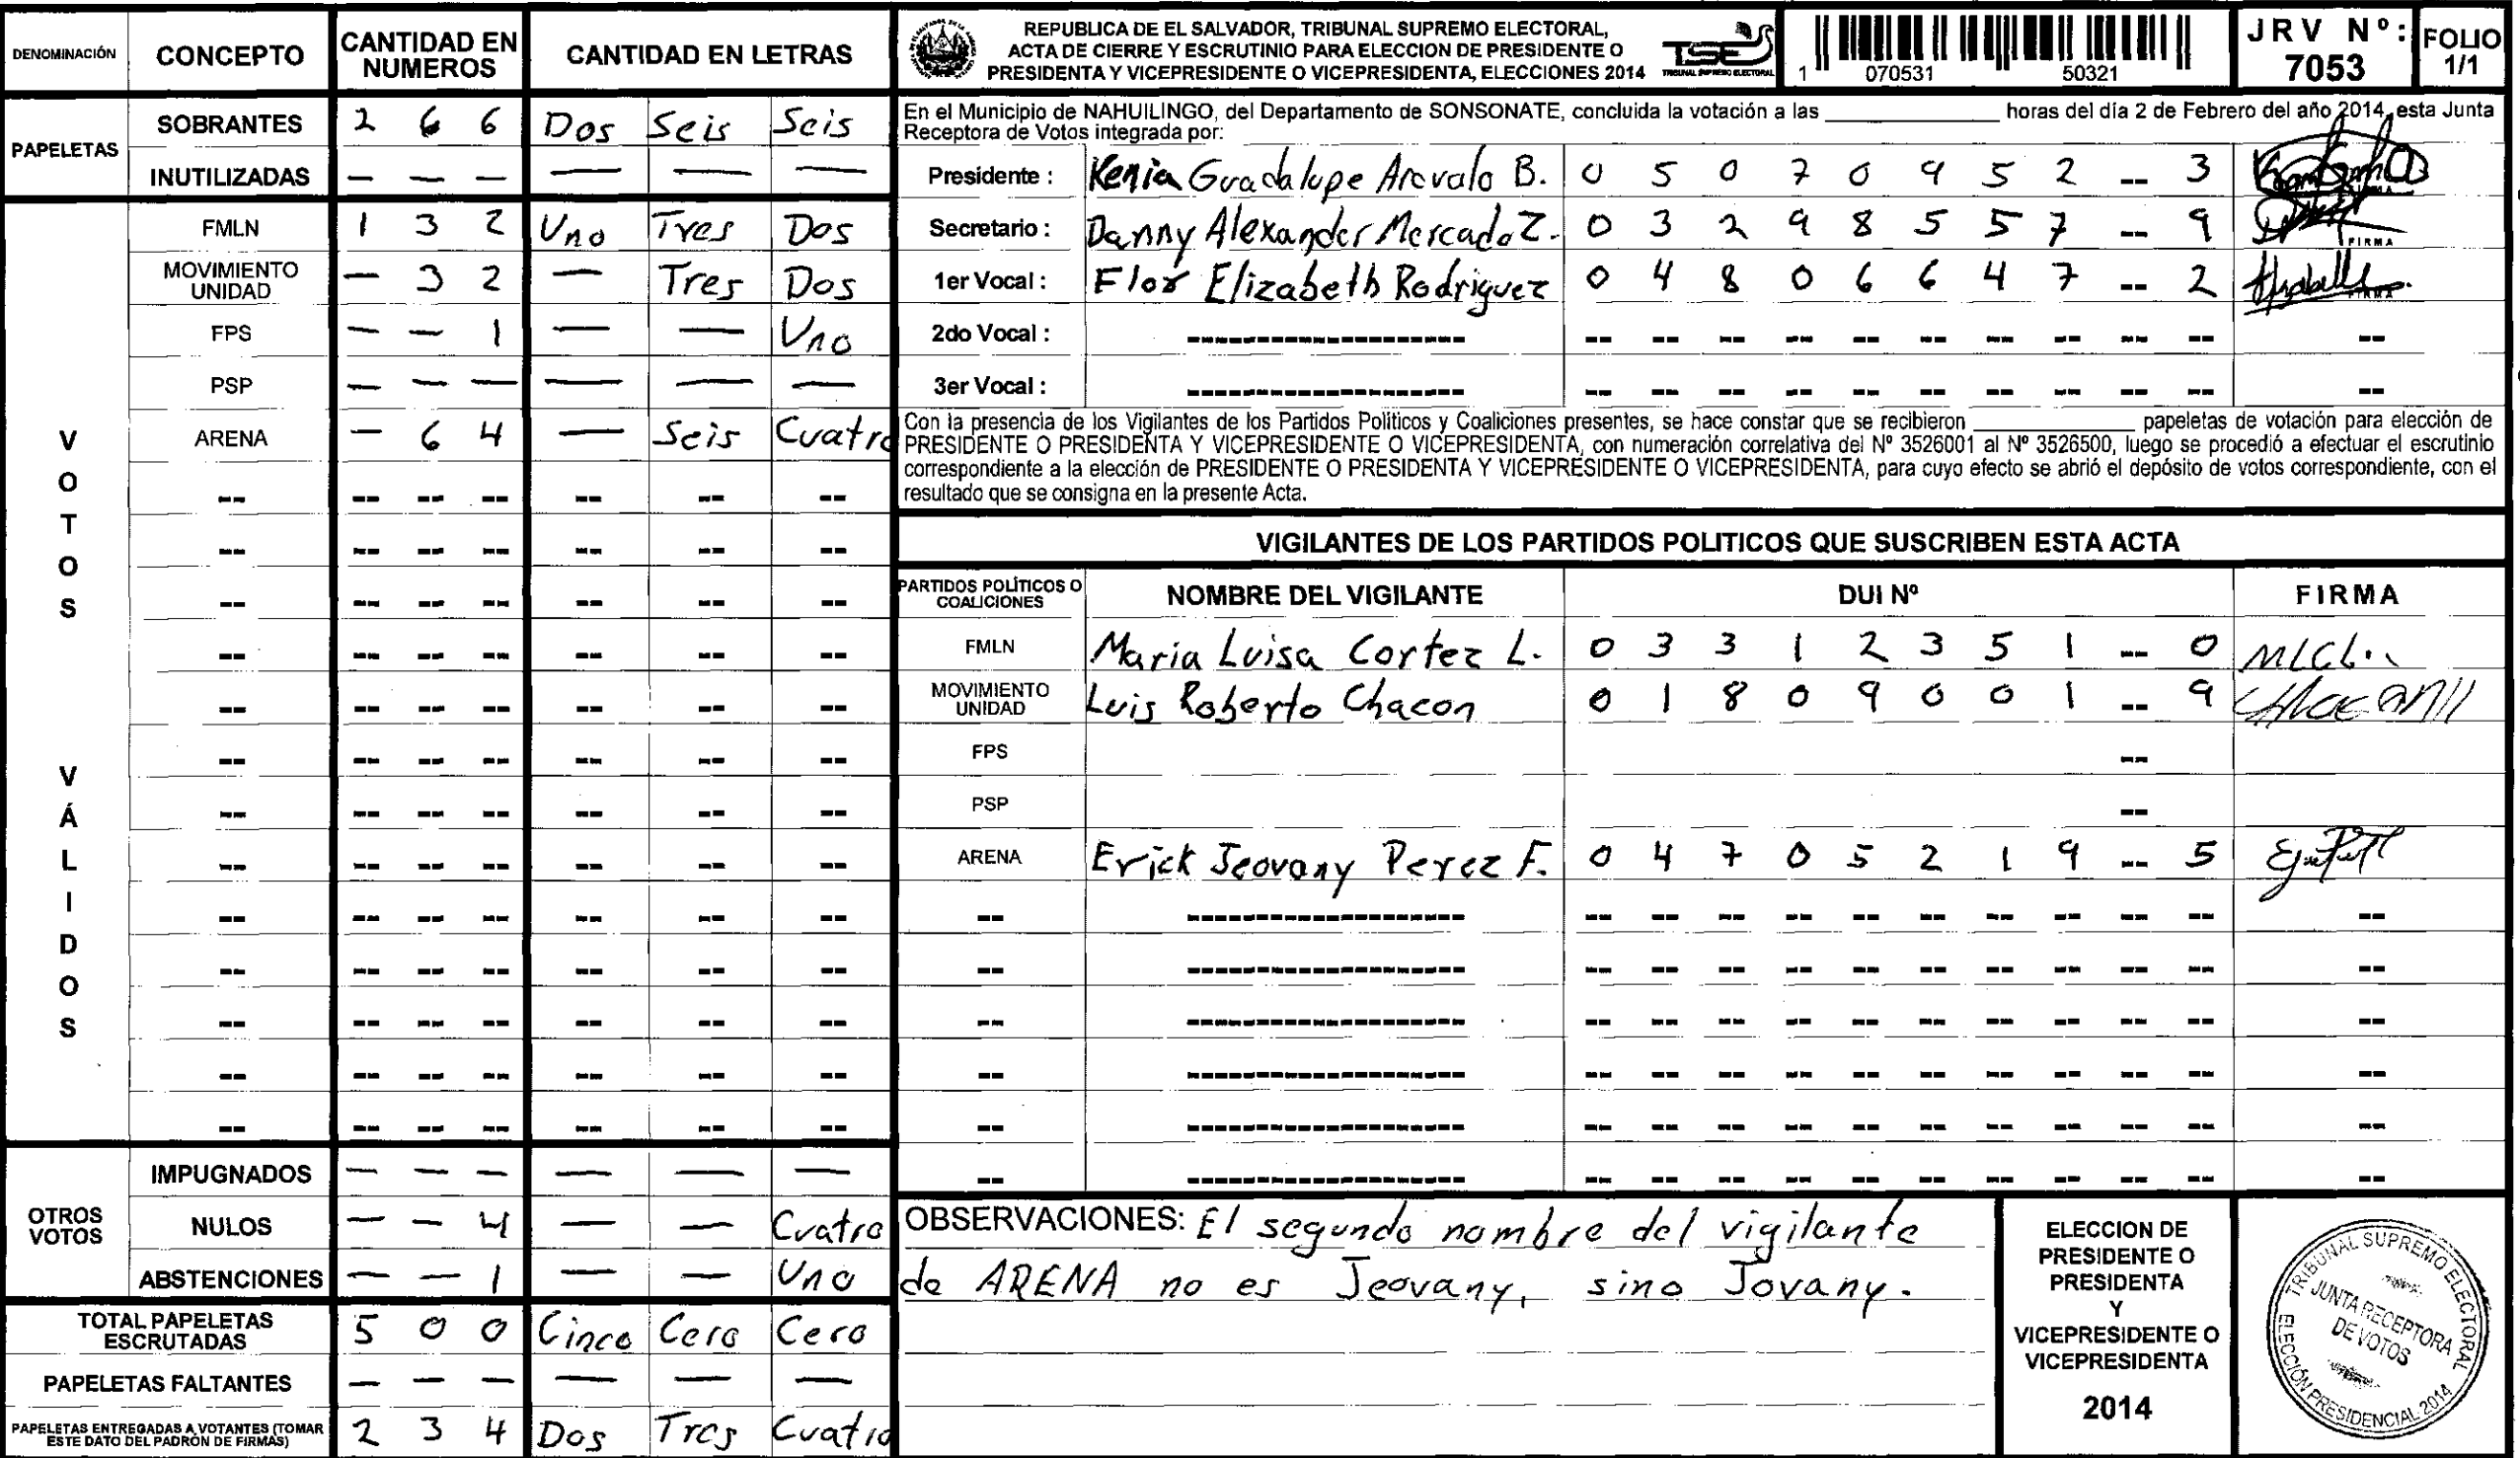 DENOMINACIÓN CONCEPTO CANTIDAD EN NUMEROS CANTIDAD EN LETRAS
PAPELETAS
SOBRANTES 2 6 6 Dos Seis Seis
INUTILIZADAS — — — — — —
VOTOS VÁLIDOS
FMLN 1 3 2 Uno Tres Dos
MOVIMIENTO UNIDAD — 3 2 — Tres Dos
FPS — — 1 — — Uno
PSP — — — — — —
ARENA — 6 4 — Seis Cuatro
-- -- -- -- -- -- --
-- -- -- -- -- -- --
-- -- -- -- -- -- --
-- -- -- -- -- -- --
-- -- -- -- -- -- --
-- -- -- -- -- -- --
-- -- -- -- -- -- --
-- -- -- -- -- -- --
-- -- -- -- -- -- --
-- -- -- -- -- -- --
-- -- -- -- -- -- --
-- -- -- -- -- -- --
-- -- -- -- -- -- --
OTROS VOTOS
IMPUGNADOS — — — — — —
NULOS — — 4 — — Cuatro
ABSTENCIONES — — 1 — — Uno
TOTAL PAPELETAS ESCRUTADAS 5 0 0 Cinco Cero Cero
PAPELETAS FALTANTES — — — — — —
PAPELETAS ENTREGADAS A VOTANTES (TOMAR ESTE DATO DEL PADRÓN DE FIRMAS) 2 3 4 Dos Tres Cuatro
REPUBLICA DE EL SALVADOR, TRIBUNAL SUPREMO ELECTORAL,
ACTA DE CIERRE Y ESCRUTINIO PARA ELECCION DE PRESIDENTE O
PRESIDENTA Y VICEPRESIDENTE O VICEPRESIDENTA, ELECCIONES 2014
TSE
TRIBUNAL SUPREMO ELECTORAL
1 070531 50321
JRV Nº: 7053
FOLIO 1/1
En el Municipio de NAHUILINGO, del Departamento de SONSONATE, concluida la votación a las ____ horas del día 2 de Febrero del año 2014, esta Junta
Receptora de Votos integrada por:
Presidente : Kenia Guadalupe Arevalo B. 0 5 0 7 0 9 5 2 -- 3
Secretario : Danny Alexander Mercado Z. 0 3 2 9 8 5 5 7 -- 9 FIRMA
1er Vocal : Flor Elizabeth Rodriguez 0 4 8 0 6 6 4 7 -- 2
2do Vocal : ------------------ -- -- -- -- -- -- -- -- -- -- --
3er Vocal : ------------------ -- -- -- -- -- -- -- -- -- -- --
Con la presencia de los Vigilantes de los Partidos Políticos y Coaliciones presentes, se hace constar que se recibieron ____ papeletas de votación para elección de
PRESIDENTE O PRESIDENTA Y VICEPRESIDENTE O VICEPRESIDENTA, con numeración correlativa del Nº 3526001 al Nº 3526500, luego se procedió a efectuar el escrutinio
correspondiente a la elección de PRESIDENTE O PRESIDENTA Y VICEPRESIDENTE O VICEPRESIDENTA, para cuyo efecto se abrió el depósito de votos correspondiente, con el
resultado que se consigna en la presente Acta.
VIGILANTES DE LOS PARTIDOS POLITICOS QUE SUSCRIBEN ESTA ACTA
PARTIDOS POLÍTICOS O COALICIONES NOMBRE DEL VIGILANTE DUI Nº FIRMA
FMLN Maria Luisa Cortez L. 0 3 3 1 2 3 5 1 -- 0 MLCL.
MOVIMIENTO UNIDAD Luis Roberto Chacon 0 1 8 0 9 0 0 1 -- 9
FPS --
PSP --
ARENA Erick Jeovany Perez F. 0 4 7 0 5 2 1 9 -- 5
-- ------------------ -- -- -- -- -- -- -- -- -- -- --
-- ------------------ -- -- -- -- -- -- -- -- -- -- --
-- ------------------ -- -- -- -- -- -- -- -- -- -- --
-- ------------------ -- -- -- -- -- -- -- -- -- -- --
-- ------------------ -- -- -- -- -- -- -- -- -- -- --
-- ------------------ -- -- -- -- -- -- -- -- -- -- --
OBSERVACIONES: El segundo nombre del vigilante
de ARENA no es Jeovany, sino Jovany.
ELECCION DE
PRESIDENTE O
PRESIDENTA
Y
VICEPRESIDENTE O
VICEPRESIDENTA
2014
TRIBUNAL SUPREMO ELECTORAL
JUNTA RECEPTORA
DE VOTOS
ELECCIÓN PRESIDENCIAL 2014